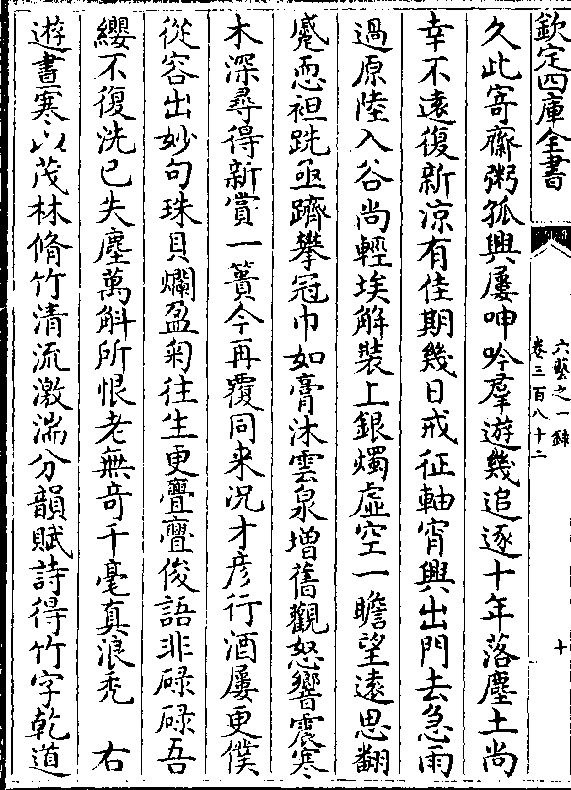 欽定四庫全書
六藝之一錄
卷三百八十二
十
久此寄齋粥孤興屢呻吟羣遊幾追逐十年落塵土尚
幸不遠復新凉有佳期幾日戒征軸宵興出門去急雨
過原陸入谷尚輕埃解裝上銀燭虛空一瞻望遠思翻
蹙恧袒跣亟躋攀冠巾如膏沐雲泉増舊觀怒響震寒
木深尋得新賞一簣今再覆同来况才彦行酒屢更僕
從容出妙句珠貝爛盈匊往生更亹亹俊語非碌碌吾
纓不復洗已失塵萬斛所恨老無竒千毫真浪秃　右
遊晝寒以茂林脩竹清流激湍分韻賦詩得竹字乾道